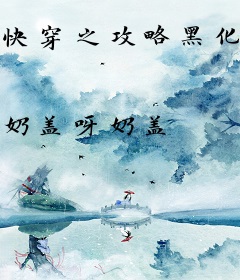 快穿之攻略黑化
奶盖呀奶盖